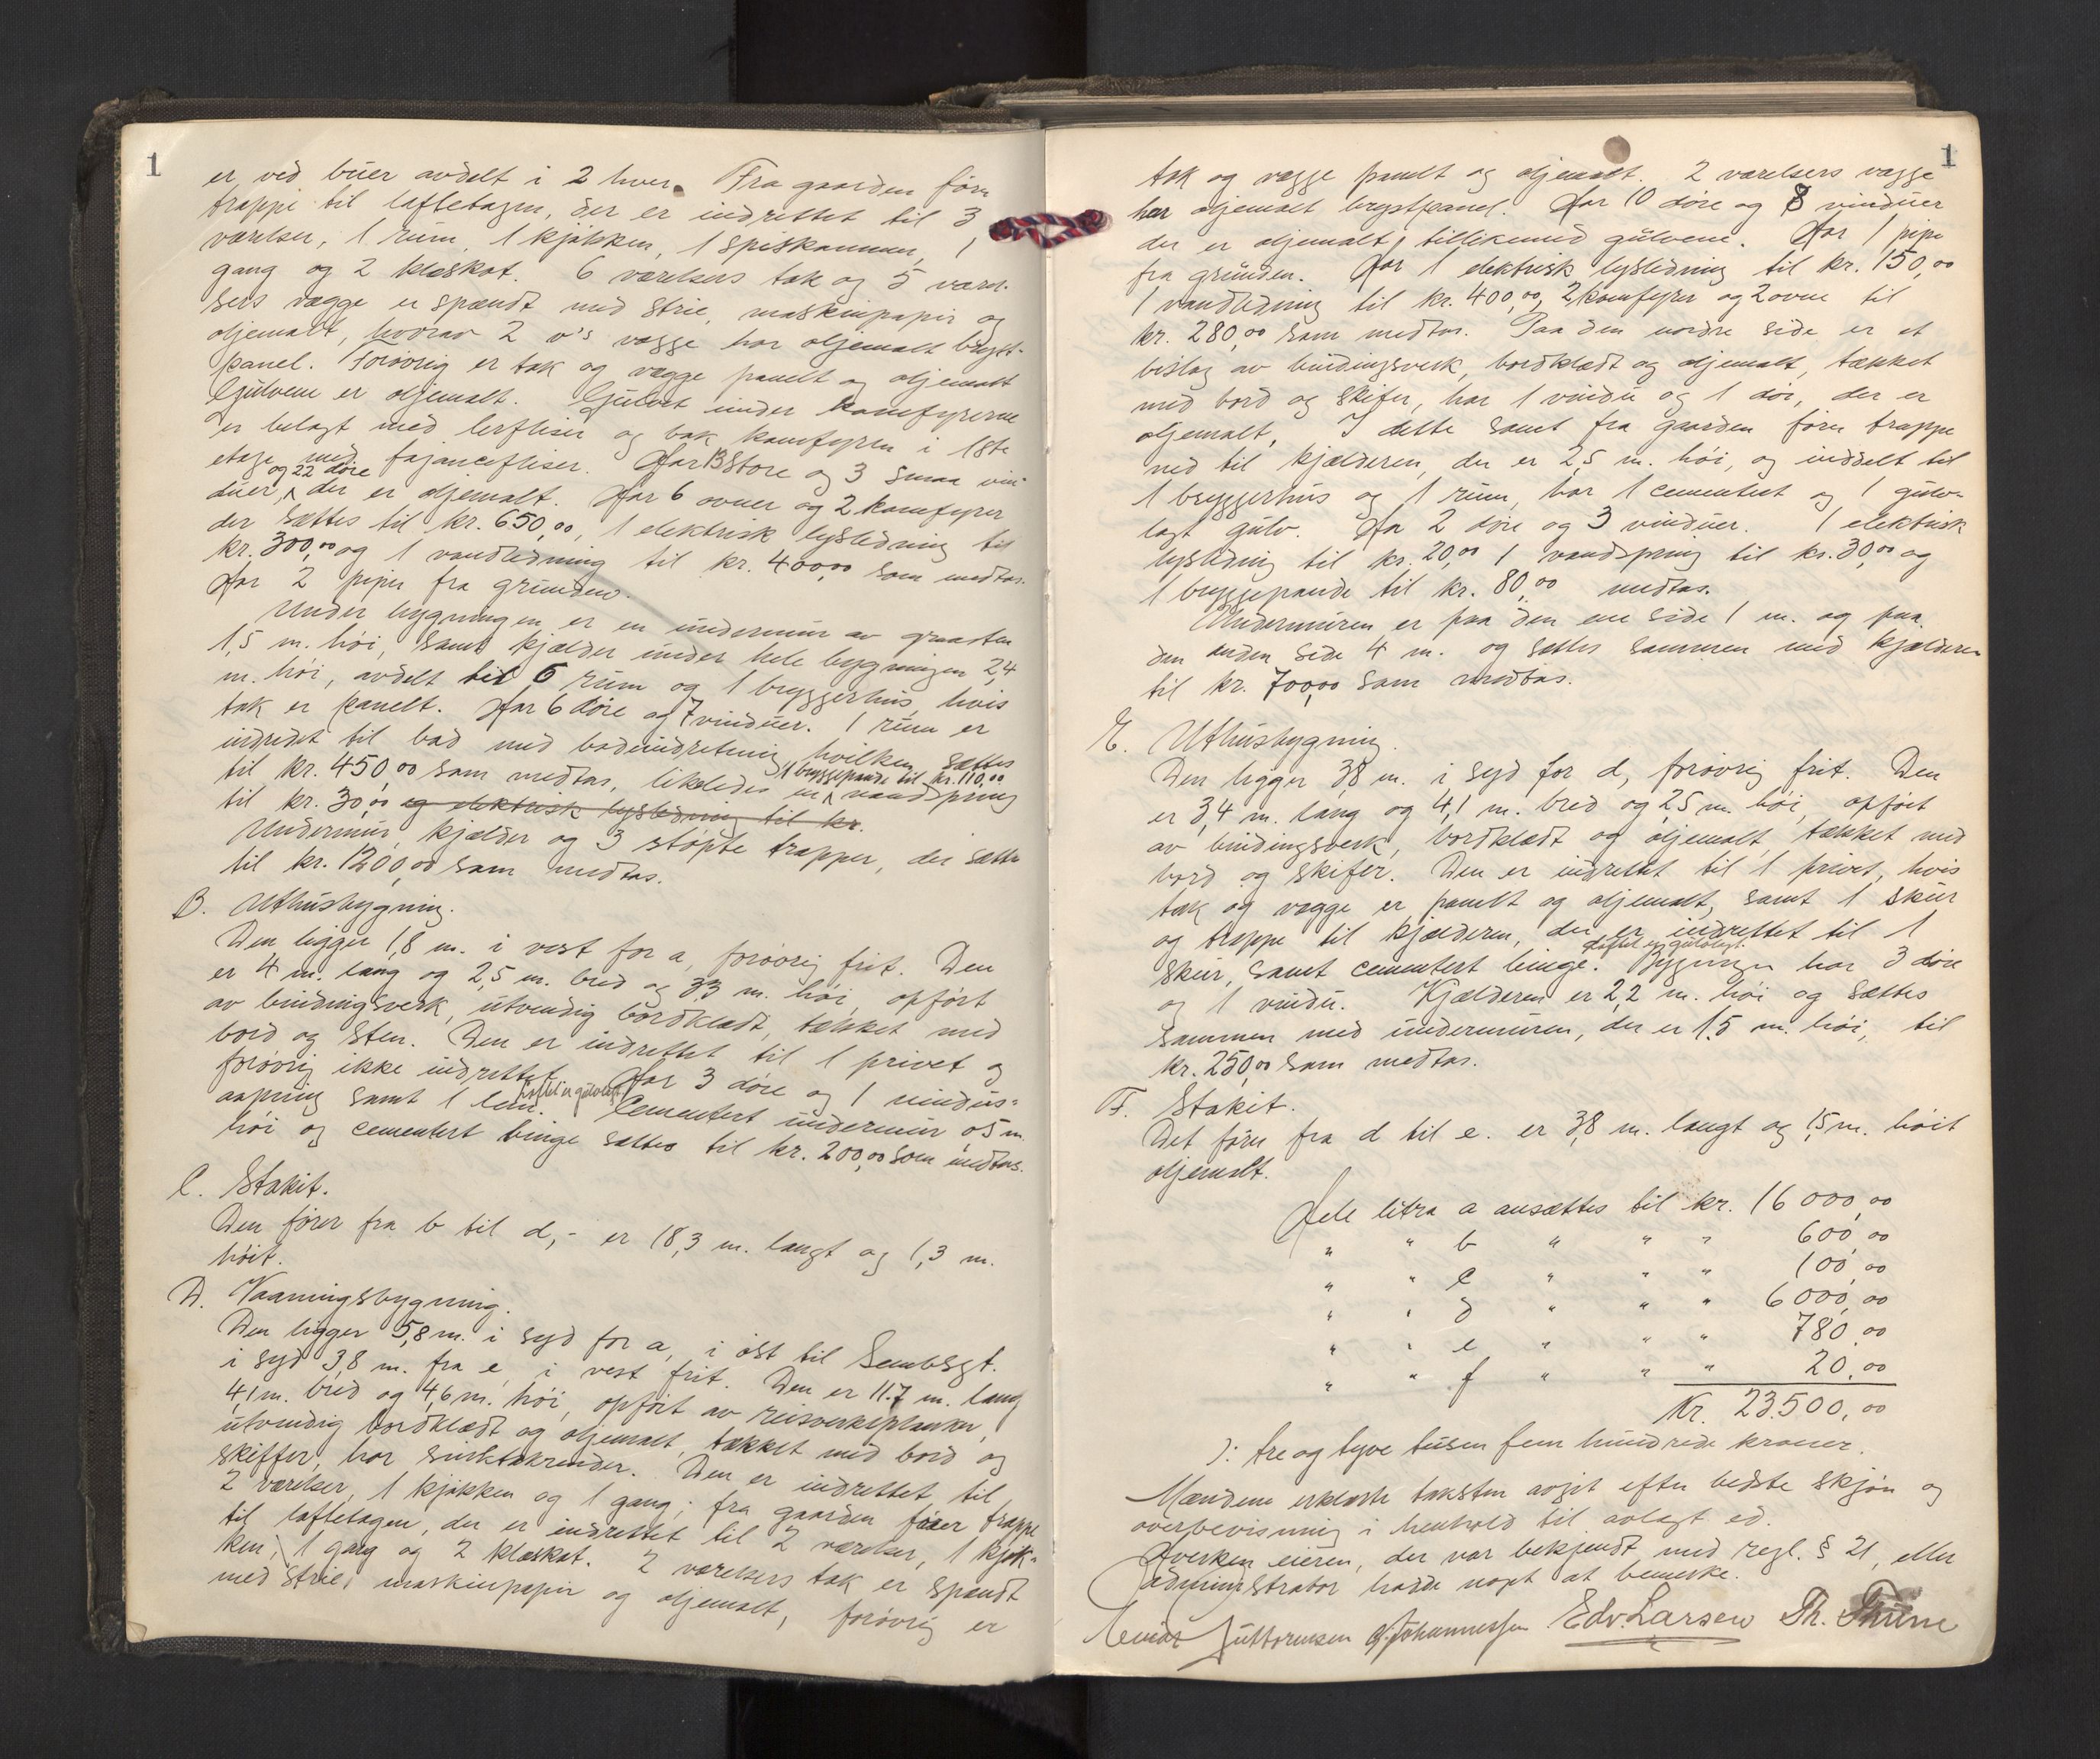 1
er ved buer avdelt i 2 hver. Fra gaarden fører
trappe til loftetagen, der er indrettet til 3
værelser, 1 rum, 1 kjøkken, 1 spiskammer, 1
gang og 2 kleskot. 6 værelsers tak og 5 værel-
sers vægge er spændt med strie, maskinpapir og
oljemalt, hvorav 2 v's vægge har oljemalt bryst-
panel. Forøvrig er tak og vægge panelt og oljemalt
Gulvene er oljemalt. Gulvet under komfyrerne
er belagt med lerfliser og bak komfyren i 1ste
etage med fajancefliser. Har 13 store og 3 smaa vin-
og 22 døre
duer, der er oljemalt. Har 6 ovner og 2 komfyrer
der sættes til kr. 650,00, 1 elektrisk lysledning til
kr. 300,00 og 1 vandledning til kr. 400,00 som medtas.
Har 2 piper fra grunden.
Under bygningen er en undermur av graasten
1,5 m. høi, samt kjælder under hele bygningen 2,4
m. høi, avdelt til 6 rum og 1 bryggerhus, hvis
tak er panelt. Har 6 døre og 7 vinduer. 1 rum er
indredet til bad med badeindretning hvilken sættes
1 bryggepande til kr. 110,00
til kr. 450,00 som medtas, likeledes en vandspring
til kr. 30,00 og elektrisk lysledning til kr.
Undermur, kjælder og 3 støpte trapper, der sættes
til kr. 1200,00 som medtas.
B. Uthusbygning.
Den ligger 1,8 m. i vest for a, forøvrig frit. Den
er 4 m. lang og 2,5 m. bred og 3,3 m. høi, opført
av bindingsverk, utvendig bordklædt, tækket med
bord og sten. Den er indrettet til 1 privet og
forøvrig ikke indrettet. Har 3 døre og 1 vindus-
Loftet er gulvlagt
aapning samt 1 lem. Cementert undermur 0,5 m.
høi og cementert binge sættes til kr. 200,00 som medtas.
C. Stakit.
Den fører fra b til d, - er 18,3 m. langt og 1,3 m.
høit.
D. Vaaningsbygning.
Den ligger 5,8 m. i syd for a, i øst til Sembsgt.
i syd 3,8 m. fra e, i vest frit. Den er 11.7 m. lang
4,1 m. bred og 4,6 m. høi, opført av reisverksplanker,
utvendig bordklædt og oljemalt, tækket med bord og
skiffer, har sinktakrender. Den er indrettet til
2 værelser, 1 kjøkken og 1 gang; fra gaarden fører trappe
til loftetagen, der er indrettet til 2 værelser, 1 kjøk-
ken, 1 gang og 2 klæskot. 2 værelsers tak er spændt
med strie, maskinpapir og oljemalt, forøvrig er
1
tak og vægge panelt og oljemalt. 2 værelsers vægge
har oljemalt brystpanel. Har 10 døre og 8 vinduer
der er oljemalt, tillikemed gulvene. Har 1 pipe
fra grunden. Har 1 elektrisk lysledning til kr. 150,00
1 vandledning til kr. 400,00, 2 komfyrer og 2 ovne til
kr. 280,00 som medtas. Paa den nordre side er et
bislag av bindingsverk, bordklædt og oljemalt, tækket
med bord og skifer, har 1 vindu og 1 dør, der er
oljemalt, I dette samt fra gaarden fører trappe
ned til kjælderen, der er 2,5 m. høi, og inddelt til
1 bryggerhus og 1 rum, har 1 cementert og 1 gulv-
lagt gulv. Har 2 døre og 3 vinduer. 1 elektrisk
lysledning til kr. 20,00 1 vandspring til kr. 30,00 og
1 bryggepande til kr. 80,00 medtas.
Undermuren er paa den ene side 1 m. og paa
den anden side 4 m. og sættes sammen med kjælderen
til kr. 700,00 som medtas.
E. Uthusbygning.
Den ligger 3,8 m. i syd for d, forøvrig frit. Den
er 3,4 m. lang og 4,1 m. bred og 2,5 m. høi, opført
av bindingsverk, bordklædt og oljemalt, tækket med
bord og skifer. Den er indrettet til 1 privet, hvis
tak og vægge er panelt og oljemalt, samt 1 skur
og trappe til kjælderen, der er indrettet til 1
Loftet er gulvlagt.
skur, samt cementert binge. Bygningen har 3 døre
og 1 vindu. Kjælderen er 2,2 m. høi og sættes
sammen med undermuren, der er 1,5 m. høi, til
kr. 250,00 som medtas.
F. Stakit.
Det fører fra d til e. er 3,8 m. langt og 1,5 m. høit
oljemalt.
Hele litra a ansættes til kr. 16 000,00
" " b " " " 600,00
" " c " " " 100,00
" " d " " " 6000,00
" " e " " " 780,00
" " f " " " 20,00
Kr. 23.500,00
): tre og tyve tusen fem hundrede kroner.
Mændene erklærte taksten avgit efter bedste skjøn og
overbevisning i henhold til avlagt ed.
Hverken eieren, der var bekjendt med regl. § 21, eller
administrator hadde noget at bemerke.
Einar Guttormsen Johannessen Edv. Larsen Th. Thune